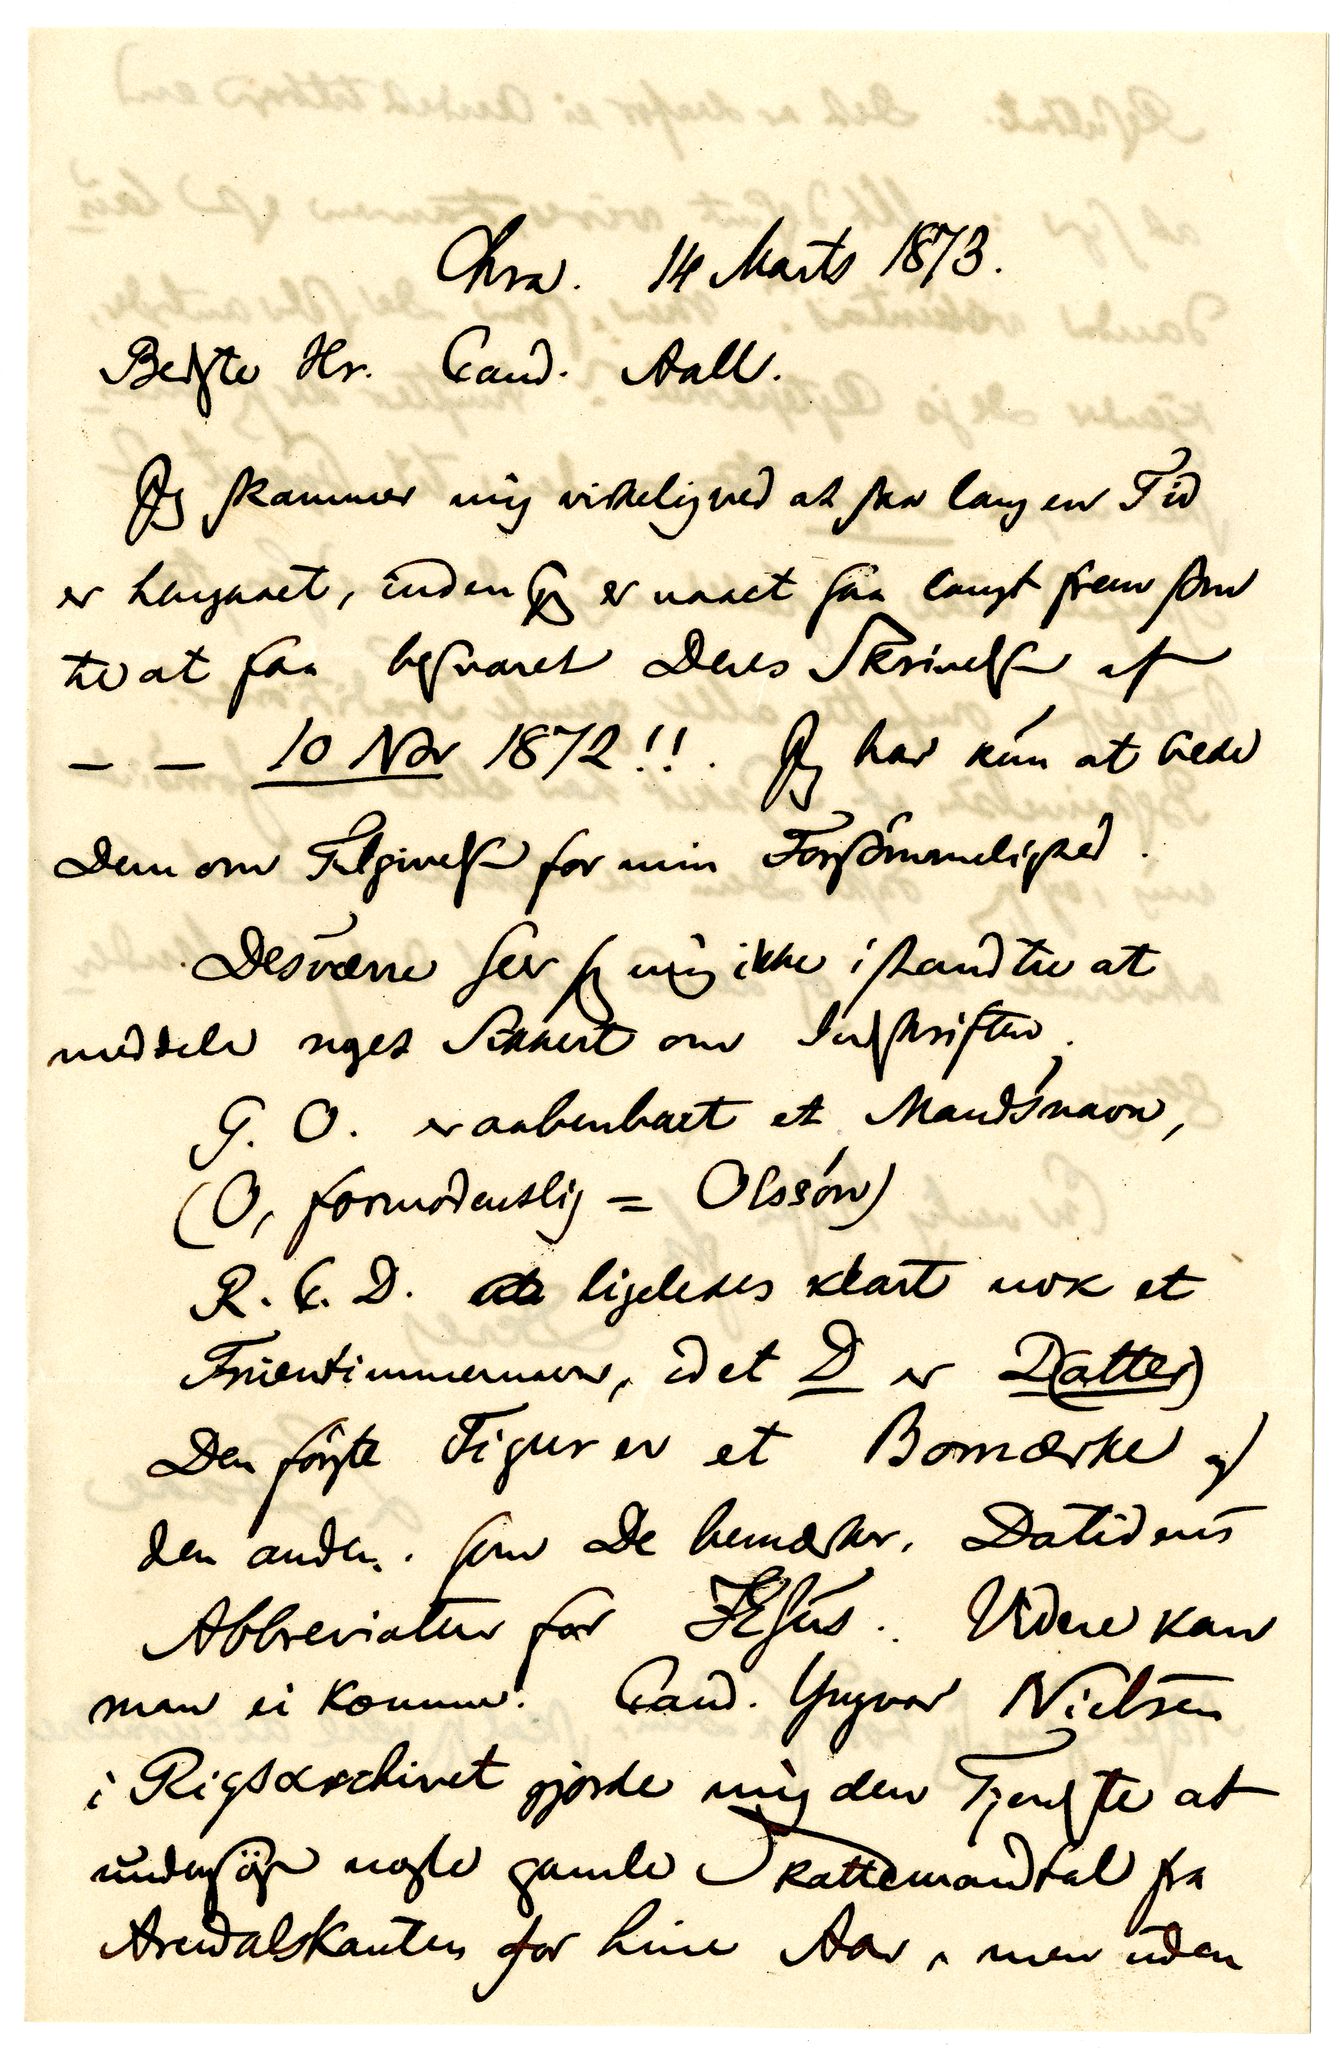 Chra. 14 Marts 1873.
Bedste Hr. Cand. Aall.
Jeg skammer mig virkelig ved at saa lang en Tid
er hengaaet, inden jeg er naaet saa langt frem som
til at faa besvaret Deres Skrivelse af
— — 10 Nov 1872!!. Jeg har kun at bede
Dem om Tilgivelse for min Forsømmelighed.
Desværre ser jeg mig ikke istand til at
meddele noget Sikkert om Indskriften.
G. O. er aabenbart et Mandsnavn,
(O, formodentlig = Olssøn)
R. C. D. ligeledes klart nok et
Fruentimmernavn, idet D er D(atter)
Den første Figur er et Bomærke og
den anden, som De bemærker, Datidens
Abbreviatur for JEsus. Videre kan
man ei komme. Cand. Yngvar Nielsen
i Rigsarchivet gjorde mig den Tjeneste at
undersøge nogle gamle Skattemandtal fra
Arendalskanten for hine Aar, men uden